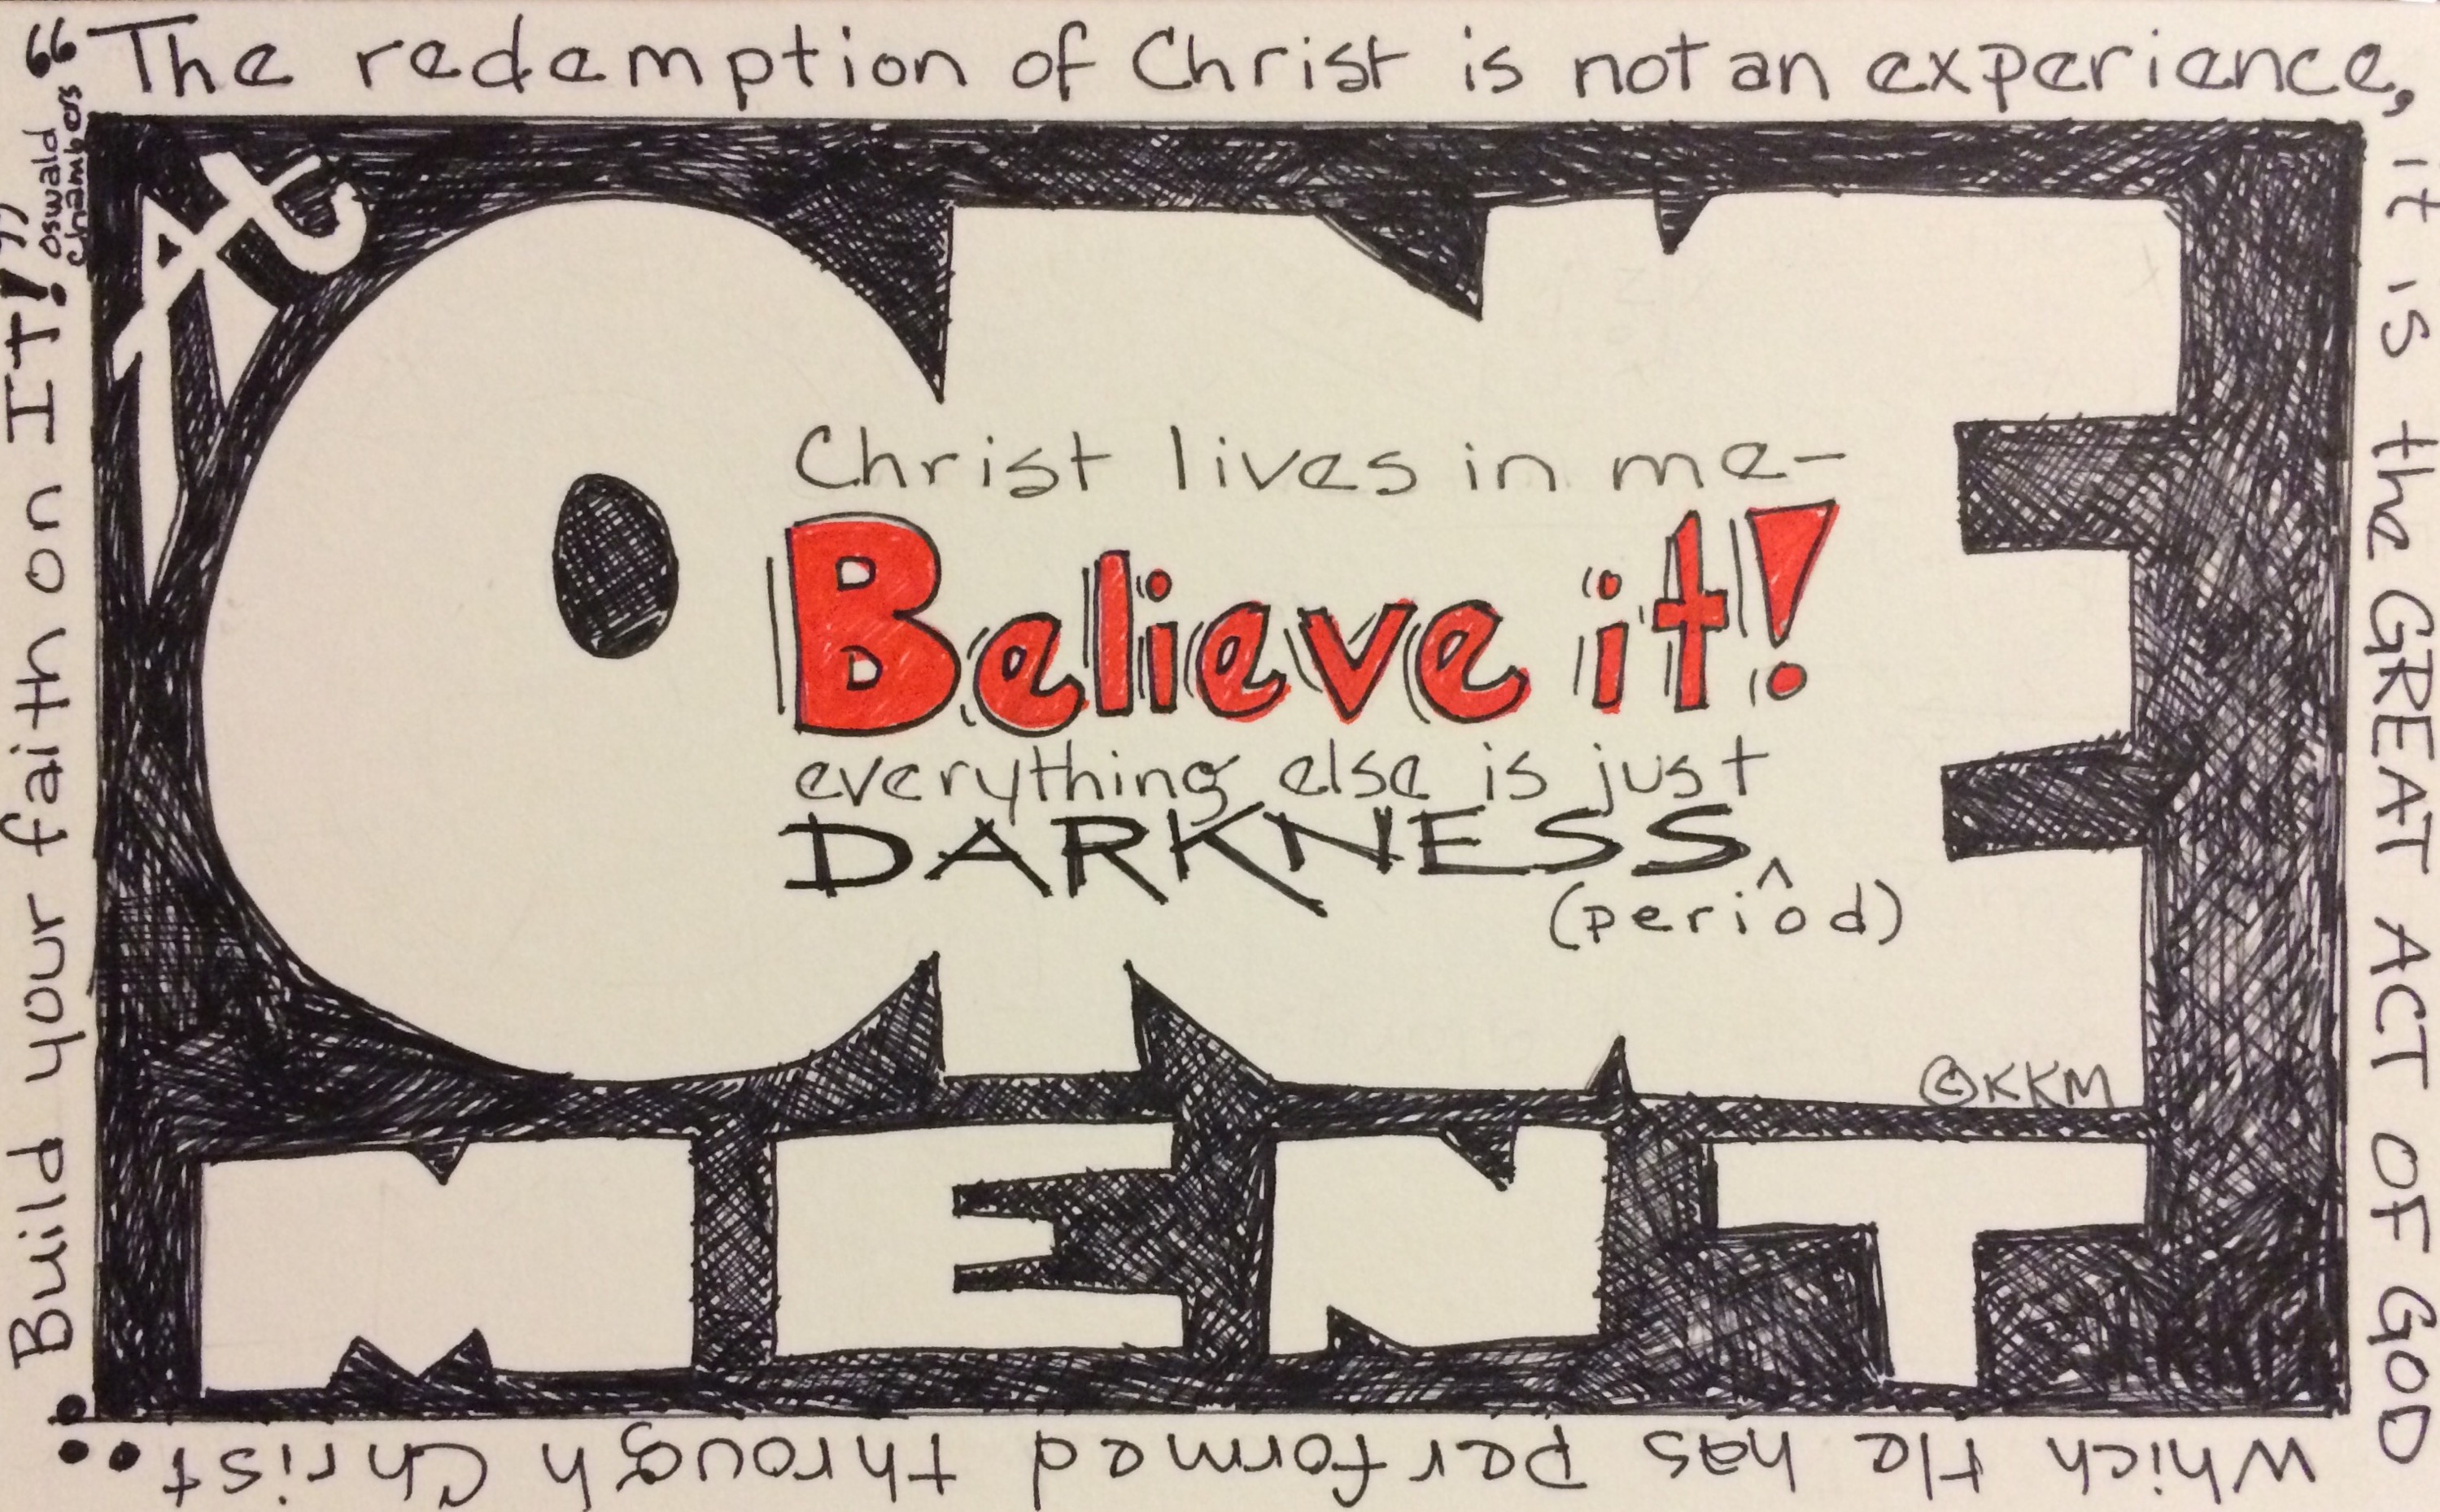 “The redemption of Christ is not an experience,
it is the GREAT ACT OF GOD
which He has performed through Christ...
Build your faith on IT!”
Oswald
Chambers
At
ONE
MENT
Christ lives in me-
Believe it!
everything else is just
DARKNESS^
(period)
©KKM